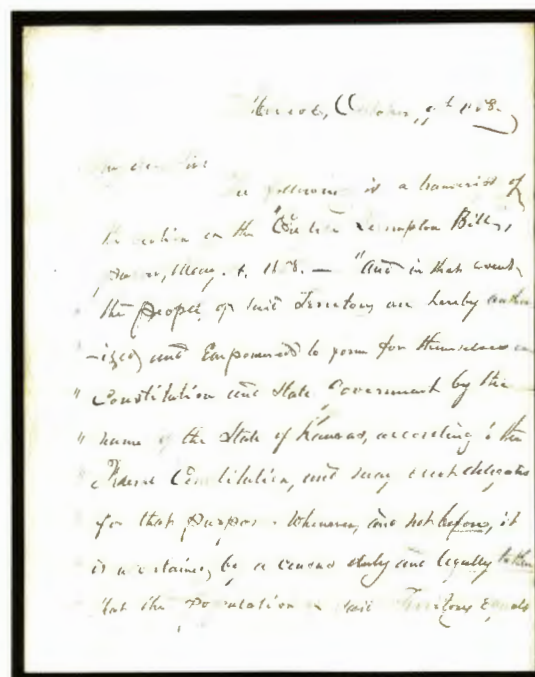 October, 9th 1858
following is a transcript of
the section in the "
Bill,
May. 4. 1858. — "And in that event,
the people of said Territory are hereby author
-ized and Empowered to form for themselves a
" Constitution and State Government by the
" name of the State of Kansas, according to the
Federal Constitution, and may elect delegates
for that purpose. Whenever, and not before, it
is ascertained by a census duly and legally taken
that the population of said Territory Equals